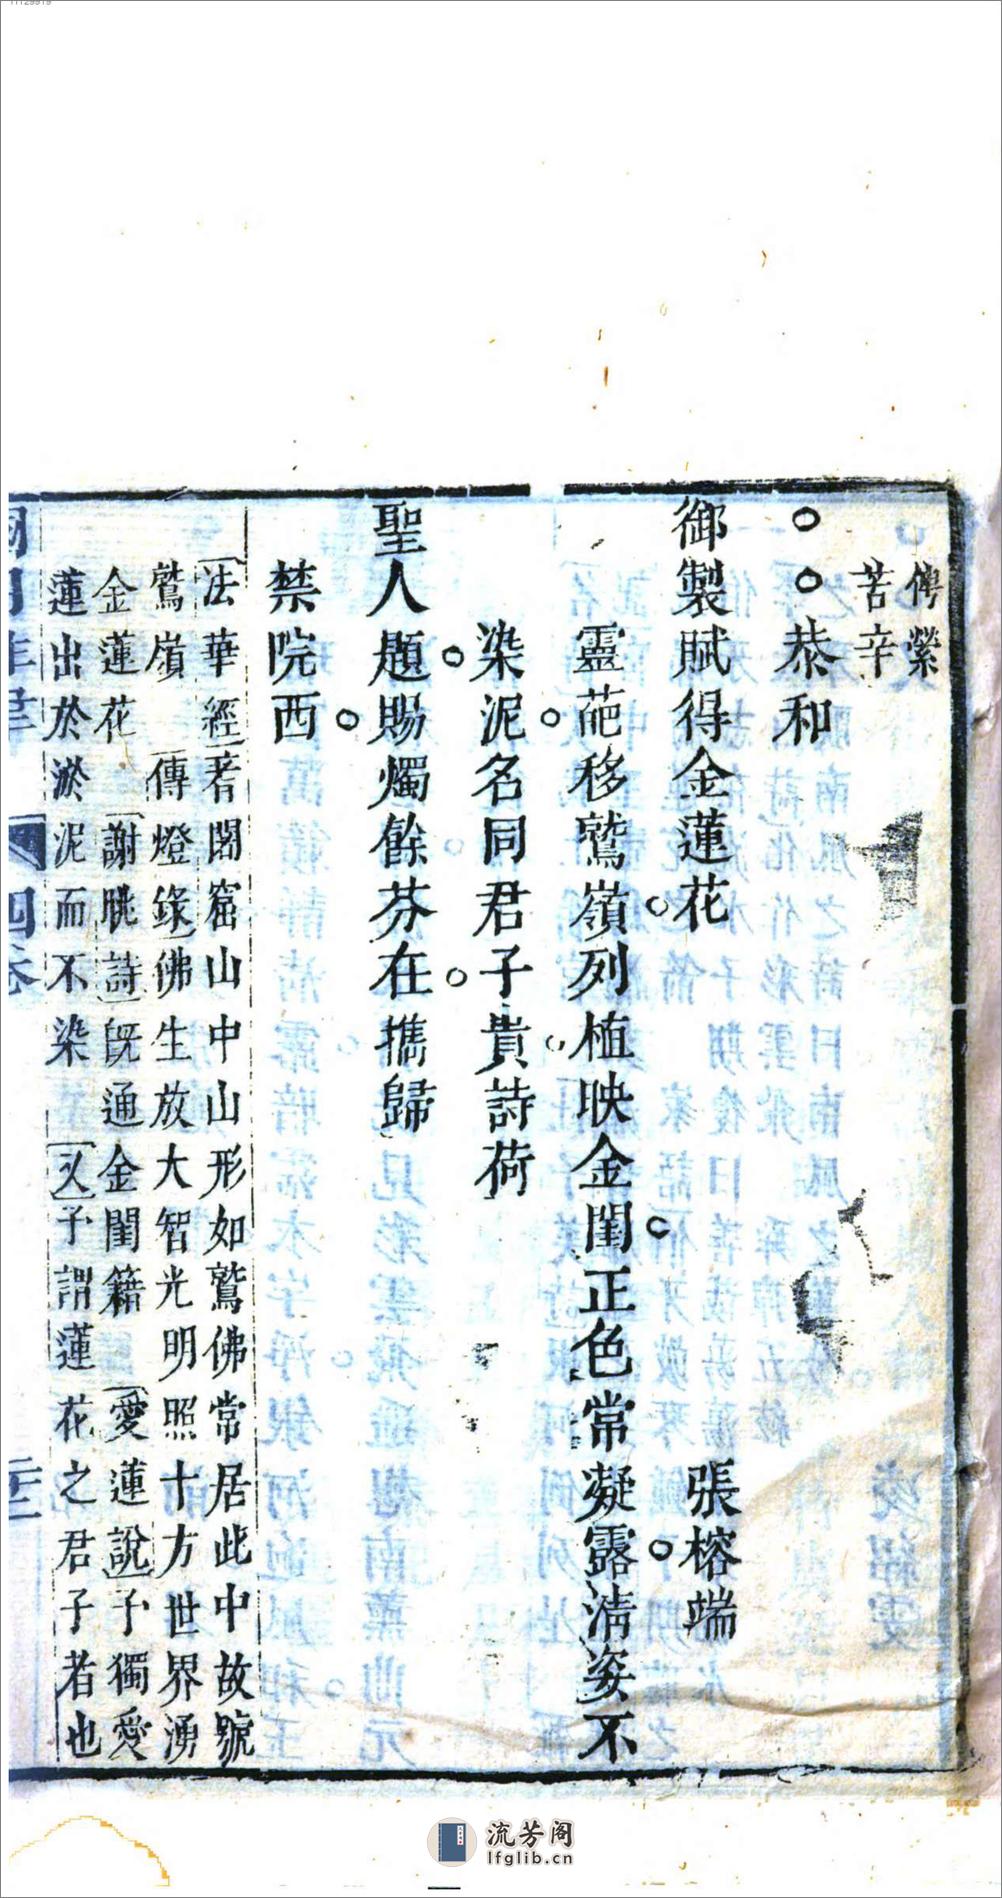 俜縈
苦辛
恭和
御製賦得金蓮花 張榕端
靈葩移鷲嶺列植映金閨正色常凝露清姿不
染泥名同君子貴詩荷
聖人題賜燭餘芬在擕歸
禁院西
法華經耆闍窟山中山形如鷲佛常居此中故號
鷲嶺 傳燈錄佛生放大智光明照十方世界湧
金蓮花 謝眺詩既通金閨籍 愛蓮說予獨愛
蓮出於淤泥而不染 又予謂蓮花之君子者也
四卷
流芳阁
lfglib.cn